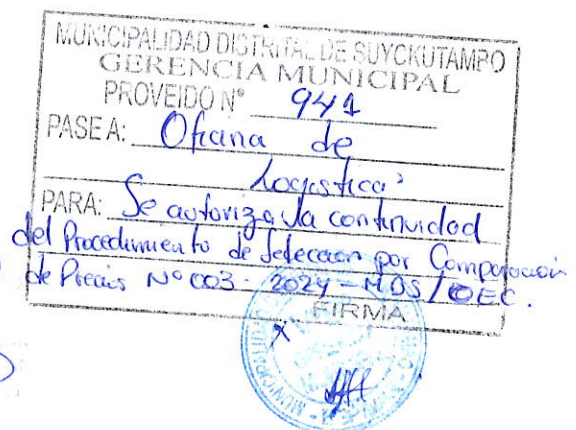 MUNICIPALIDAD DISTRITAL DE SUYCKUTAMPO
GERENCIA MUNICIPAL
PROVEIDO N° 941
PASE A: Oficina de
Logistica
PARA: Se autoriza la continuidad
del Procedimiento de Selección por Comparacion
de Precios N° 003-2024-MDS/OEC.
FIRMA